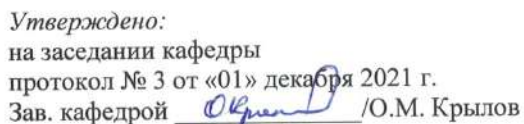 Утверждено:
на заседании кафедры
протокол № 3 от «01» декабря 2021 г.
Зав. кафедрой /О.М. Крылов